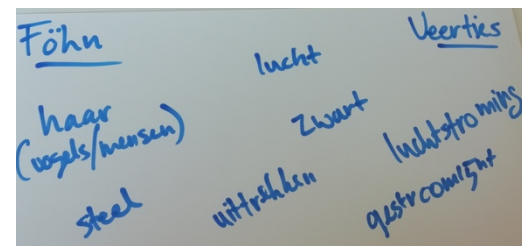 Föhn
lucht
Veertjes
haar
(vogels/mensen)
zwart
luchtstroming
steel
uittrekken